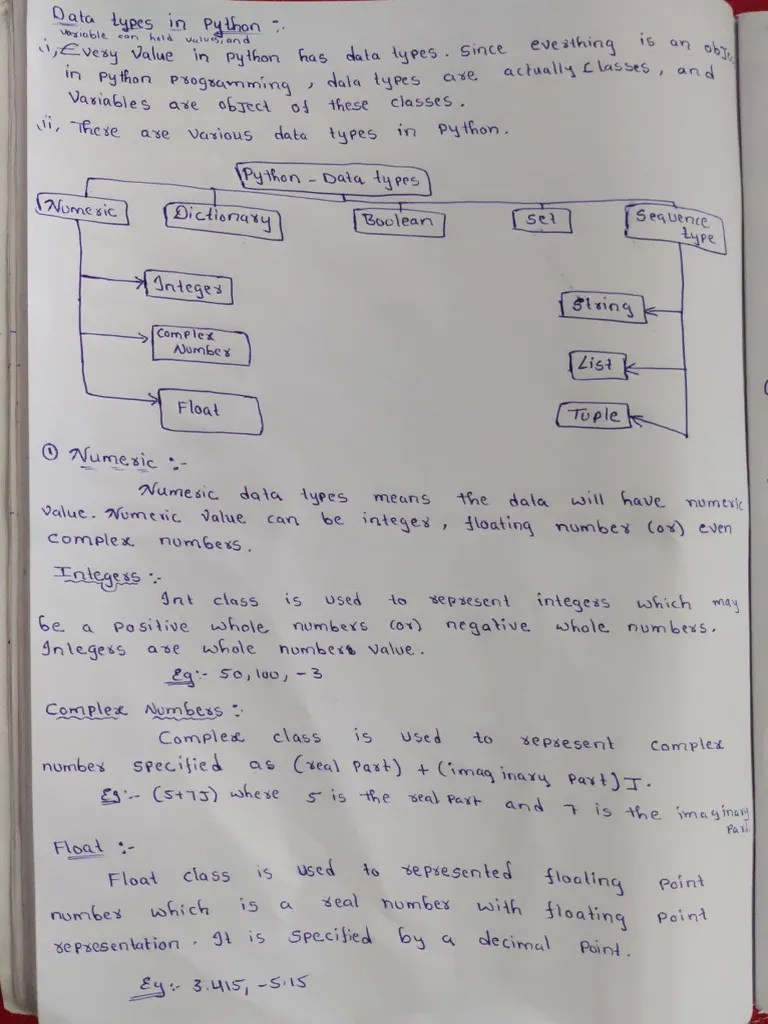 Data types in Python :-
variable can hold values, and
i, Every value in python has data types. since everthing is an object
in python programming, data types are actually classes, and
variables are object of these classes.
ii, There are various data types in python.
Python - Data types
Numeric Dictionary Boolean set Sequence
type
Integer
String
Complex
Number
List
Float
Tuple
① Numeric :-
Numeric data types means the data will have numeric
value. Numeric value can be integer, floating number (or) even
complex numbers.
Integers :-
Int class is used to represent integers which may
be a positive whole numbers (or) negative whole numbers.
Integers are whole numbers value.
Eg:- 50, 100, -3
Complex Numbers :-
Complex class is used to represent complex
number specified as (real part) + (imaginary part)J.
Eg:- (5+7J) where 5 is the real part and 7 is the imaginary
part
Float :-
Float class is used to represented floating point
number which is a real number with floating point
representation. It is specified by a decimal point.
Eg:- 3.415, -5.15